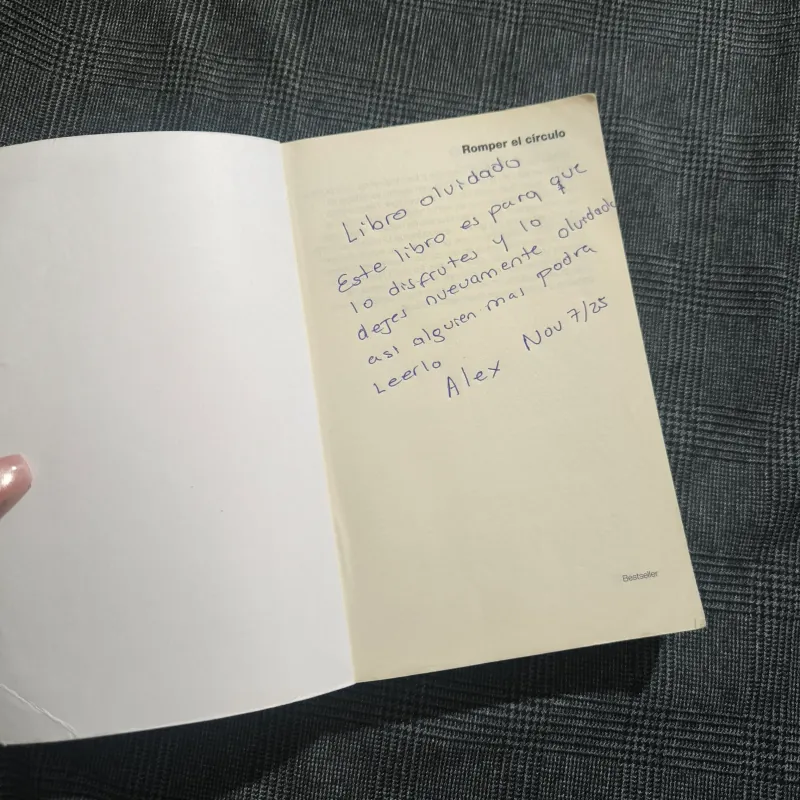 Romper el círculo
Libro olvidado
Este libro es para que
lo disfrutes y lo
dejes nuevamente olvidado
asi alguien mas podra
Leerlo
Alex Nov 7/25
Bestseller